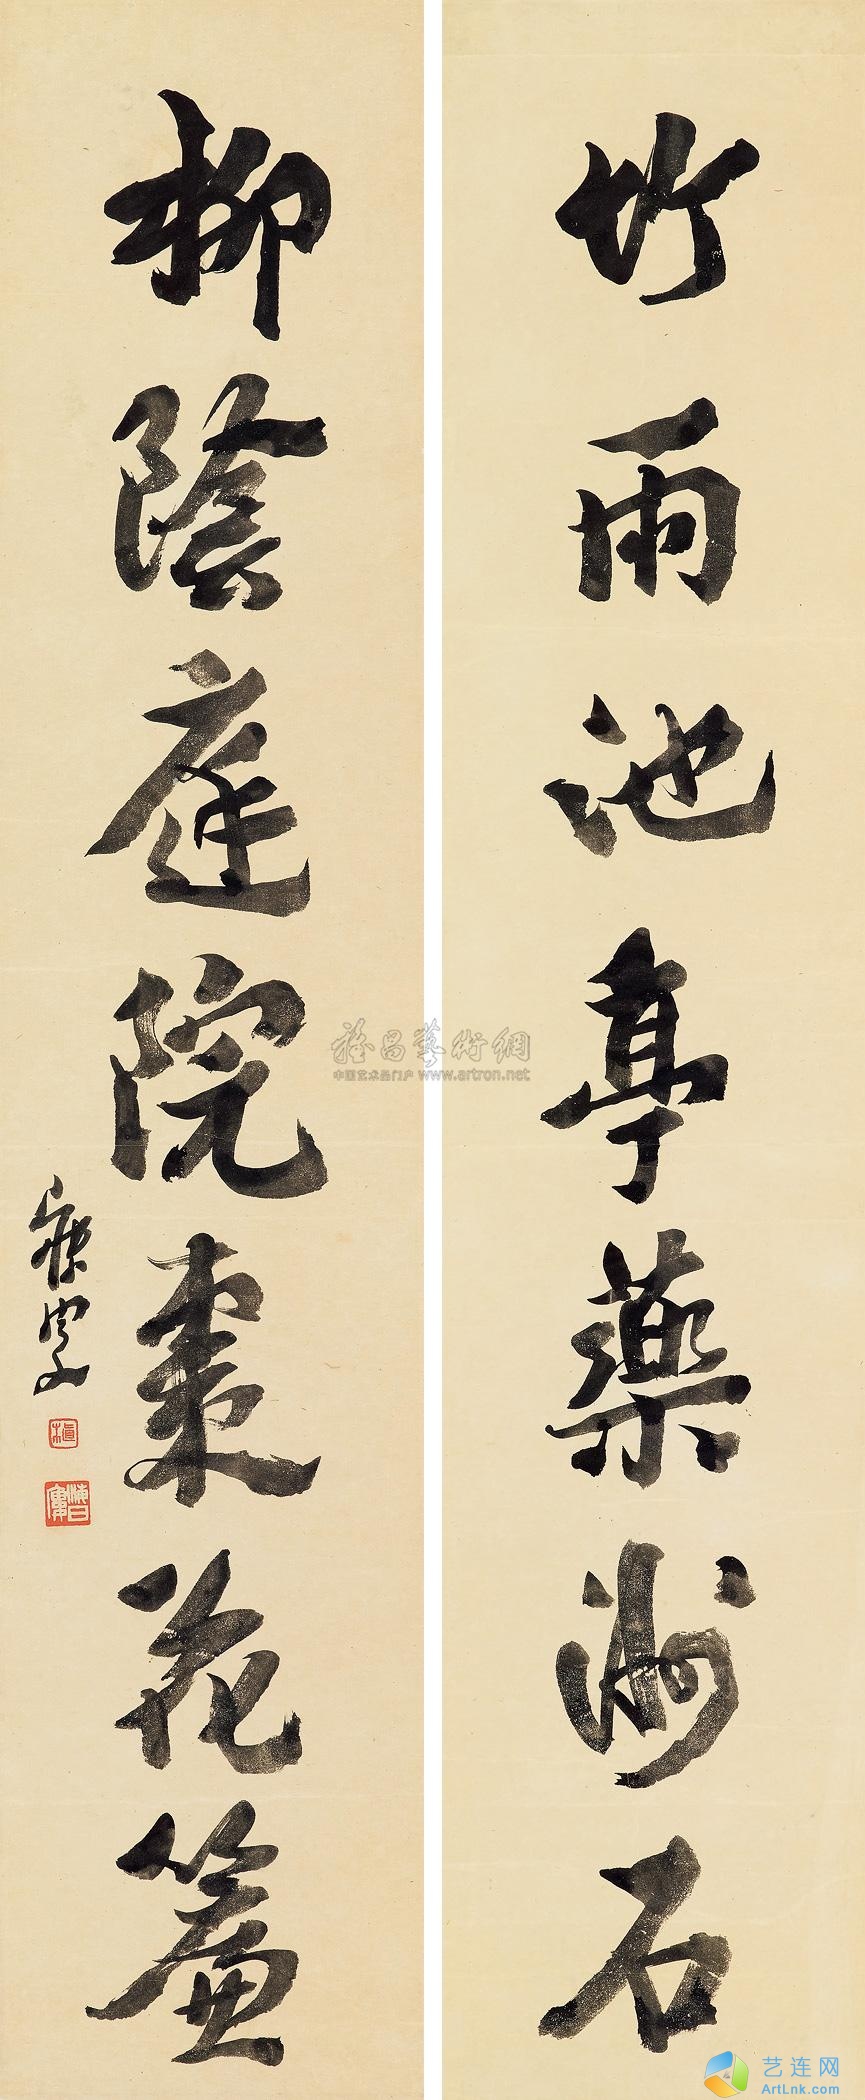 竹雨池亭藥洲石
柳陰庭院棗花簾
雅昌藝術網
中国艺术品门户 www.artron.net
艺连网
ArtLnk.com